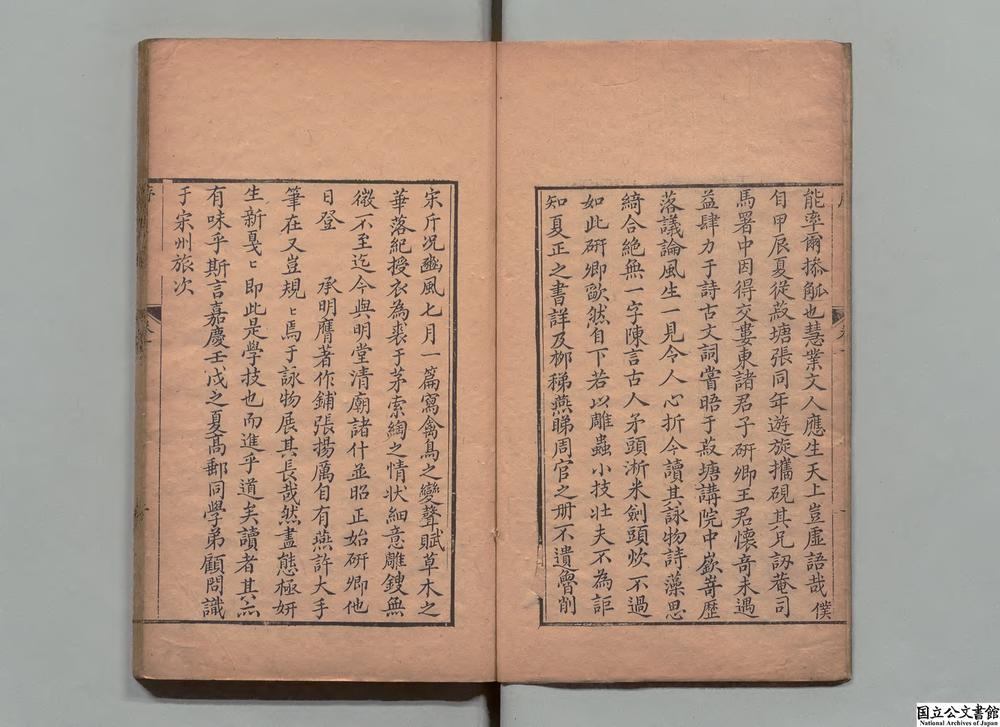 能率爾掭觚也慧業文人應生天上豈虛語哉僕
自甲辰夏從菽塘張同年遊旋攜硯其兄訒菴司
馬署中因得交婁東諸君子研卿王君懷奇未遇
益肆力于詩古文詞嘗晤于菽塘講院中嶔嵜歷
落議論風生一見令人心折今讀其詠物詩藻思
綺合絶無一字陳言古人矛頭淅米劍頭炊不過
如此研卿歐然自下若以雕蟲小技壯夫不為詎
知夏正之書詳及桺稊燕睇周官之册不遺魯削
宋斤况豳風七月一篇寫禽鳥之變聲賦草木之
華落紀授衣為裘于茅索綯之情狀細意雕鎪無
微不至迄今與明堂清廟諸什並昭正始研卿他
日登 承明膺著作鋪張揚厲自有燕許大手
筆在又豈規〻焉于詠物展其長哉然盡態極妍
生新戛〻即此是學技也而進乎道矣讀者其亦
有味乎斯言嘉慶壬戌之夏髙郵同學弟顧問識
于宋州旅次
序
卷一
國立公文書館
National Archives of Japan